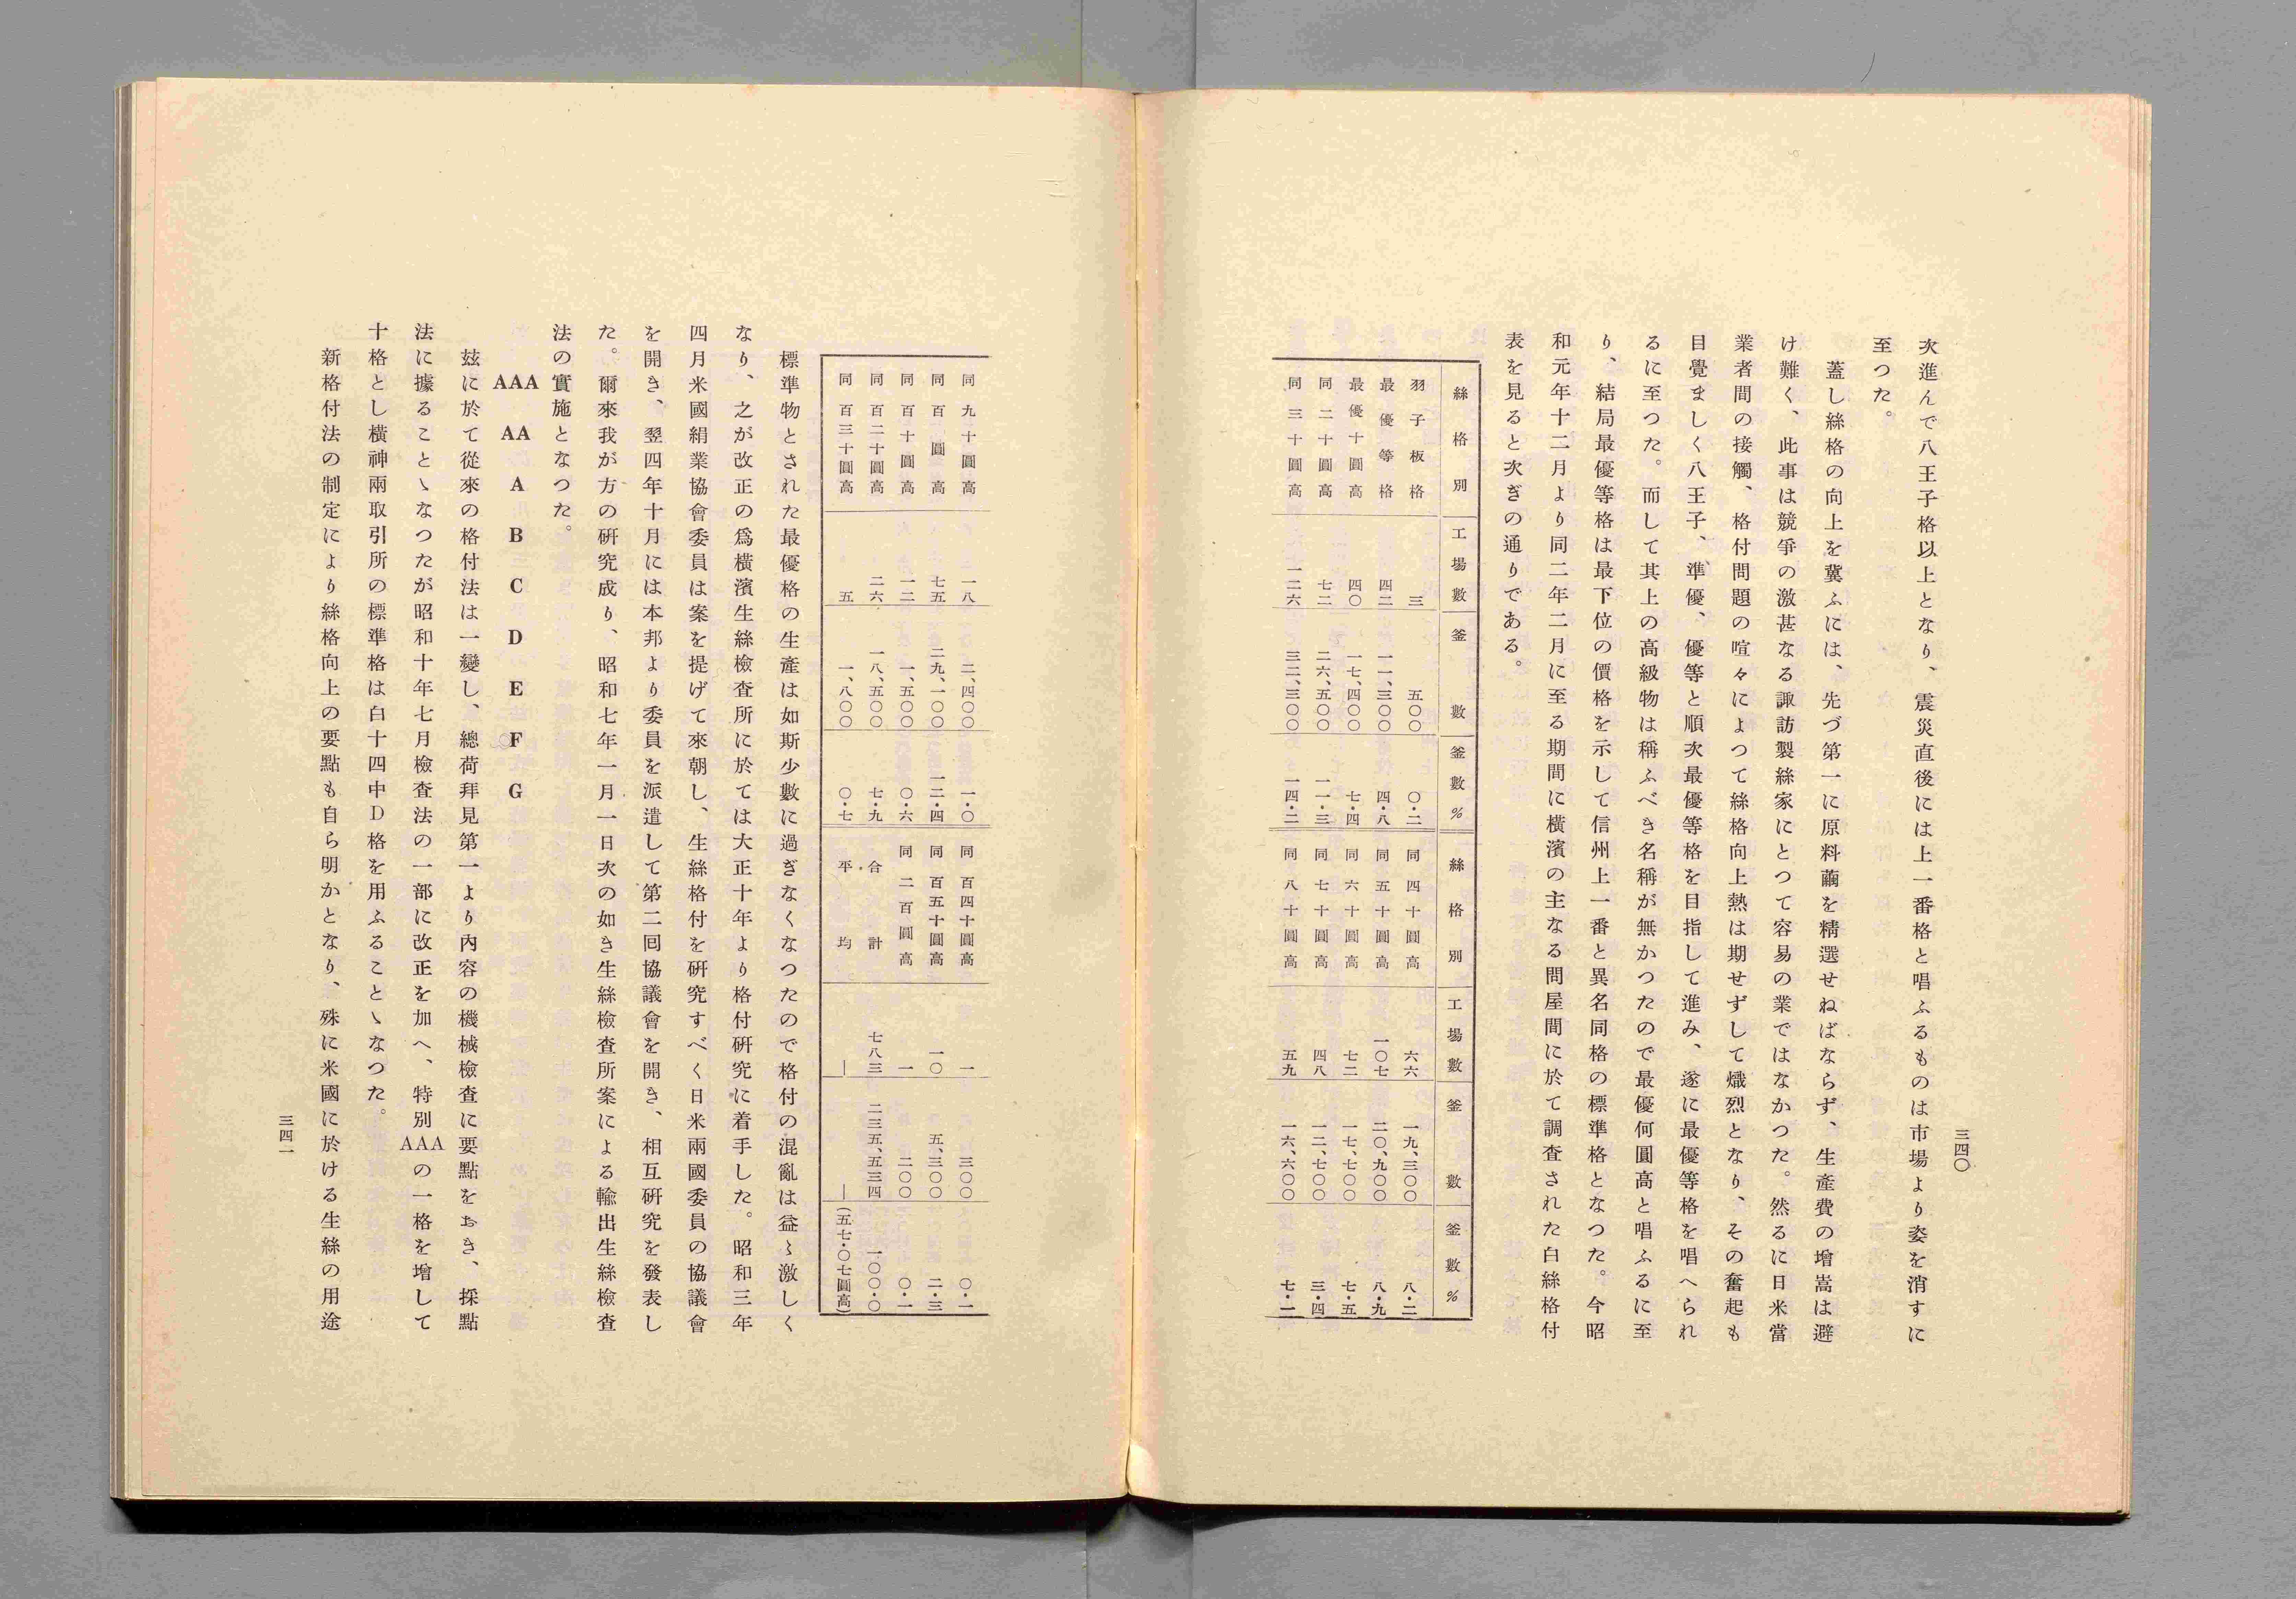 三四〇
次進んで八王子格以上となり、震災直後には上一番格と唱ふるものは市場より姿を消すに
至つた。
蓋し絲格の向上を冀ふには、先づ第一に原料繭を精選せねばならず、生產費の增嵩は避
け難く、此事は競爭の激甚なる諏訪製絲家にとつて容易の業ではなかつた。然るに日米當
業者間の接觸、格付問題の喧々によつて絲格向上熱は期せずして熾烈となり、その奮起も
目覺ましく八王子、準優、優等と順次最優等格を目指して進み、遂に最優等格を唱へられ
るに至つた。而して其上の高級物は稱ふべき名稱が無かつたので最優何圓高と唱ふるに至
り、結局最優等格は最下位の價格を示して信州上一番と異名同格の標準格となつた。今昭
和元年十二月より同二年二月に至る期間に橫濱の主なる問屋間に於て調査された白絲格付
表を見ると次ぎの通りである。
絲格別 工場數 釜數 釜數% 絲格別 工場數 釜數 釜數%
羽子板格 三 五〇〇 〇・二 同四十圓高 六六 一九、三〇〇 八・二
最優等格 四二 一一、三〇〇 四・八 同五十圓高 一〇七 二〇、九〇〇 八・九
最優十圓高 四〇 一七、四〇〇 七・四 同六十圓高 七二 一七、七〇〇 七・五
同二十圓高 七二 二六、五〇〇 一一・三 同七十圓高 四八 一二、七〇〇 三・四
同三十圓高 一二六 三二、三〇〇 一四・二 同八十圓高 五九 一六、六〇〇 七・二
同九十圓高 一八 二、四〇〇 一・〇 同百四十圓高 一 三〇〇 〇・一
同百圓高 七五 二九、一〇〇 一二・四 同百五十圓高 一〇 五、三〇〇 二・三
同百十圓高 一二 一、五〇〇 〇・六 同二百圓高 一 二〇〇 〇・一
同百二十圓高 二六 一八、五〇〇 七・九 合計 七八三 二三五、五三四 一〇〇・〇
同百三十圓高 五 一、八〇〇 〇・七 平均 ― ― (五七・〇七圓高)
標準物とされた最優格の生產は如斯少數に過ぎなくなつたので格付の混亂は益〻激しく
なり、之が改正の爲橫濱生絲檢查所に於ては大正十年より格付硏究に着手した。昭和三年
四月米國絹業協會委員は案を提げて來朝し、生絲格付を硏究すべく日米兩國委員の協議會
を開き、翌四年十月には本邦より委員を派遣して第二囘協議會を開き、相互硏究を發表し
た。爾來我が方の硏究成り、昭和七年一月一日次の如き生絲檢查所案による輸出生絲檢查
法の實施となつた。
AAA AA A B C D E F G
玆に於て從來の格付法は一變し、總荷拜見第一より內容の機械檢查に要點をおき、採點
法に據ることゝなつたが昭和十年七月檢查法の一部に改正を加へ、特別AAAの一格を增して
十格とし橫神兩取引所の標準格は白十四中D格を用ふることゝなつた。
新格付法の制定により絲格向上の要點も自ら明かとなり、殊に米國に於ける生絲の用途
三四一